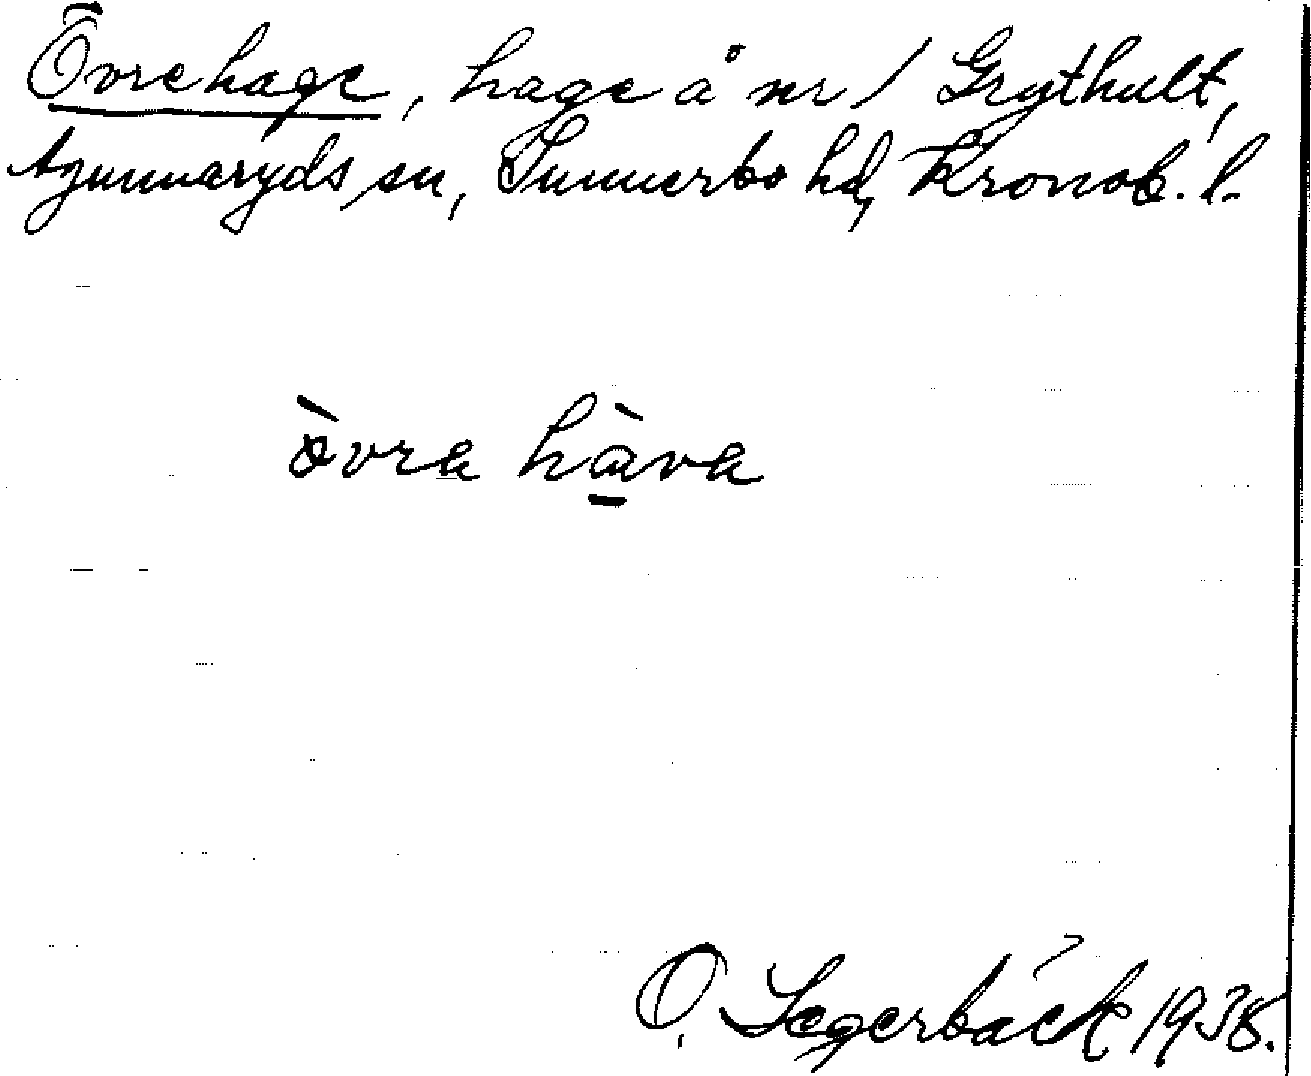 Övrehage, hage å nr 1 Grythult,
Agunnaryds sn, Sunnerbo hd, Kronob. l.
òvra hàva
O. Segerbäck 1938.